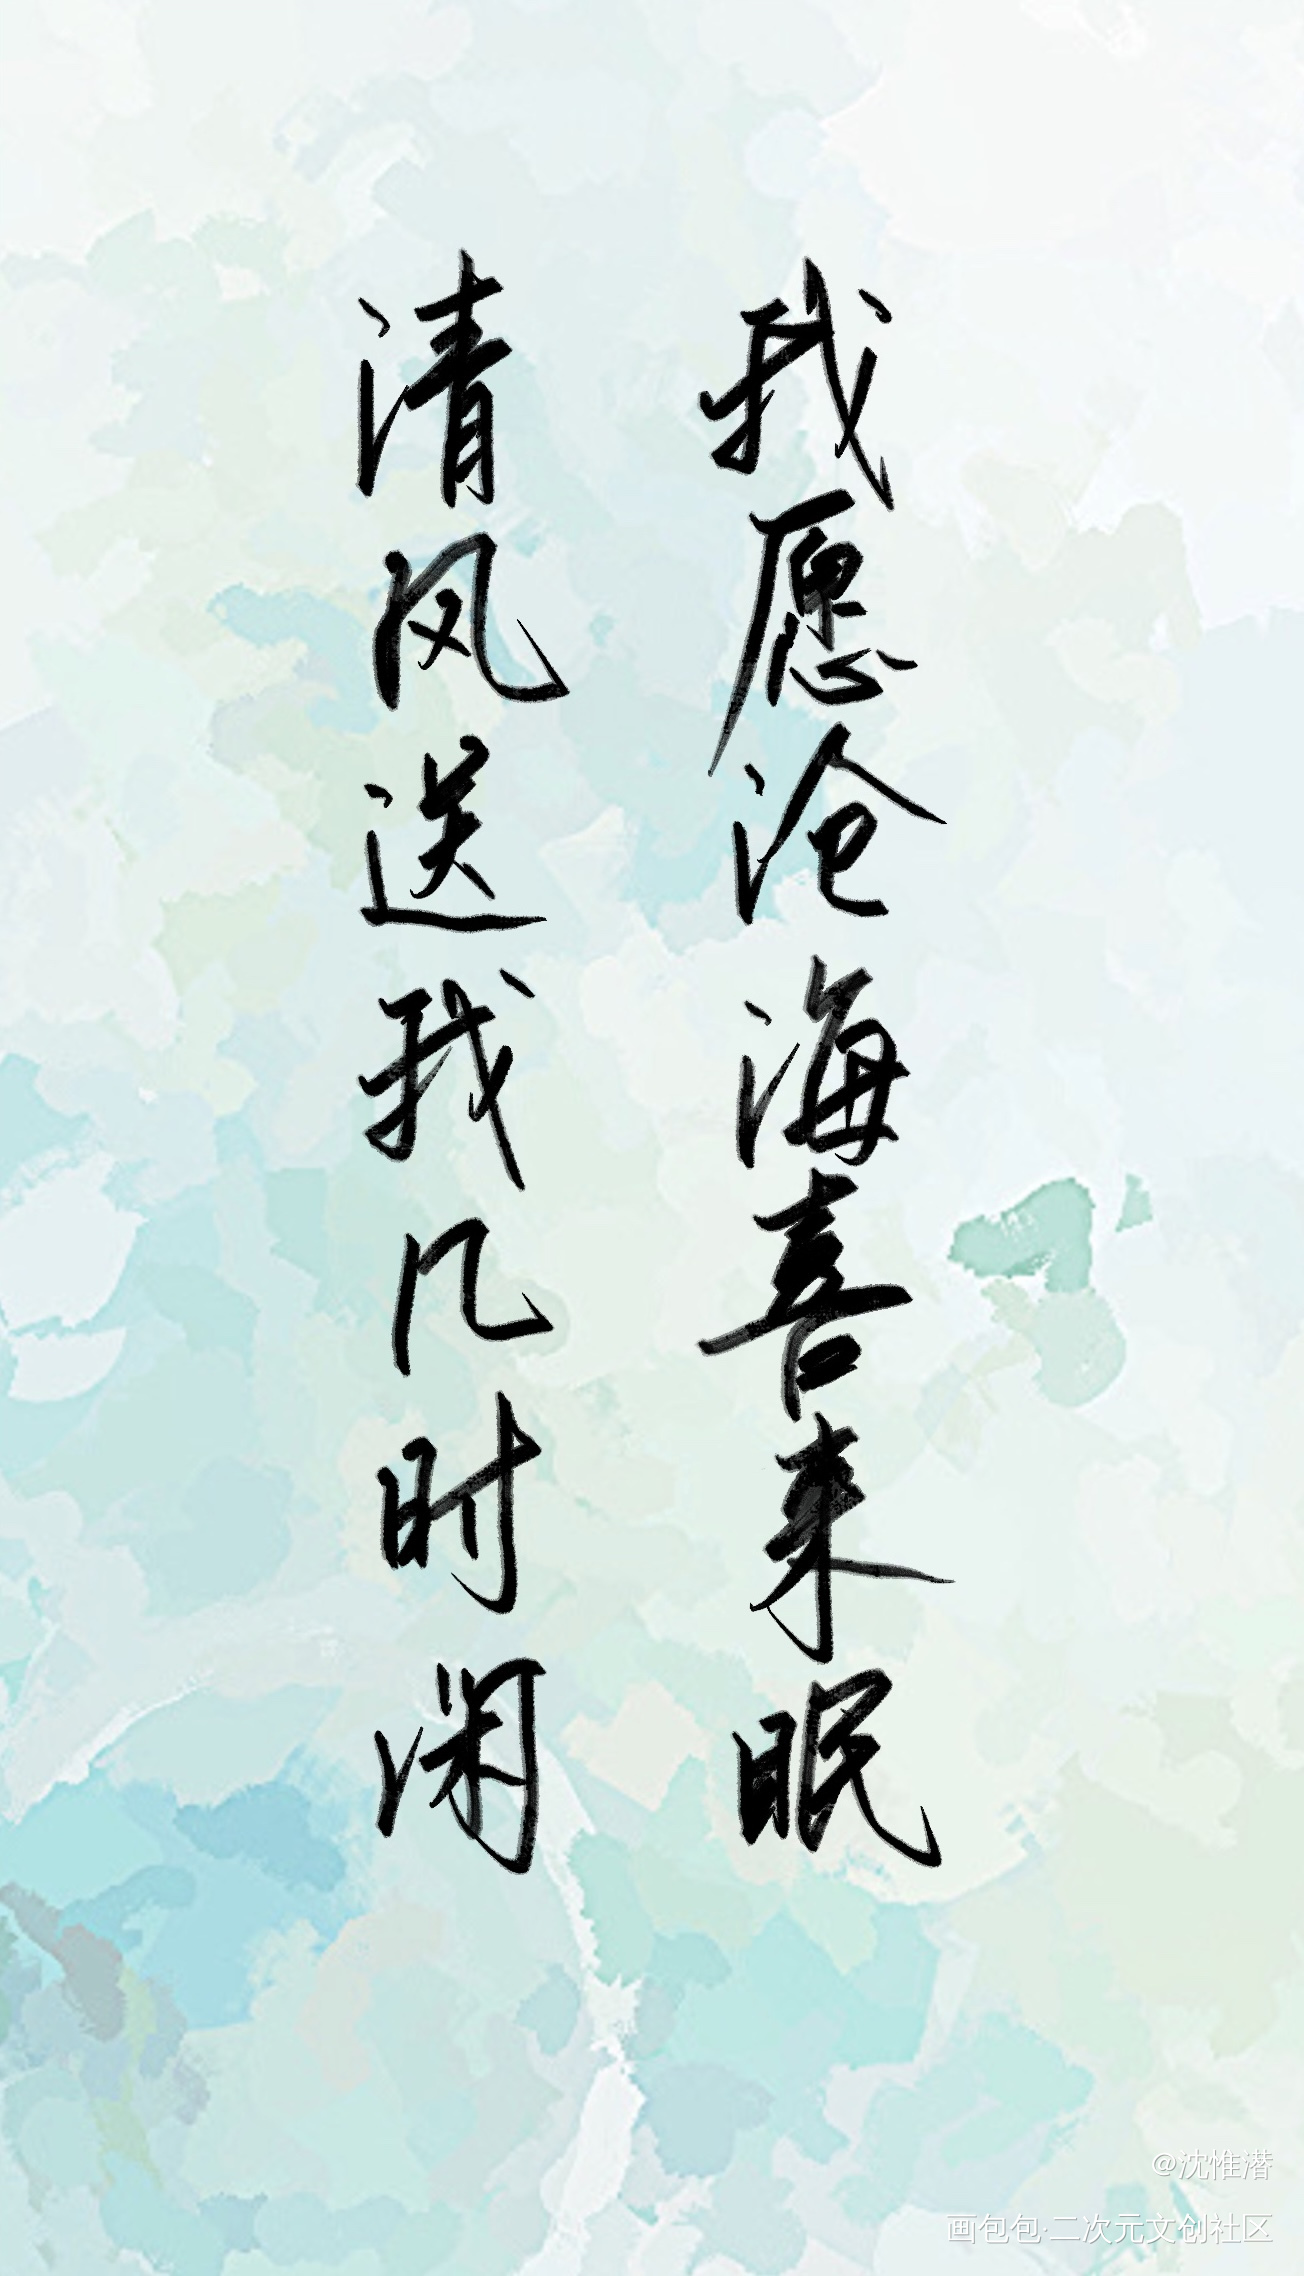 我愿沧海喜来眠
清风送我几时闲
@沈惟潜
画包包·二次元文创社区